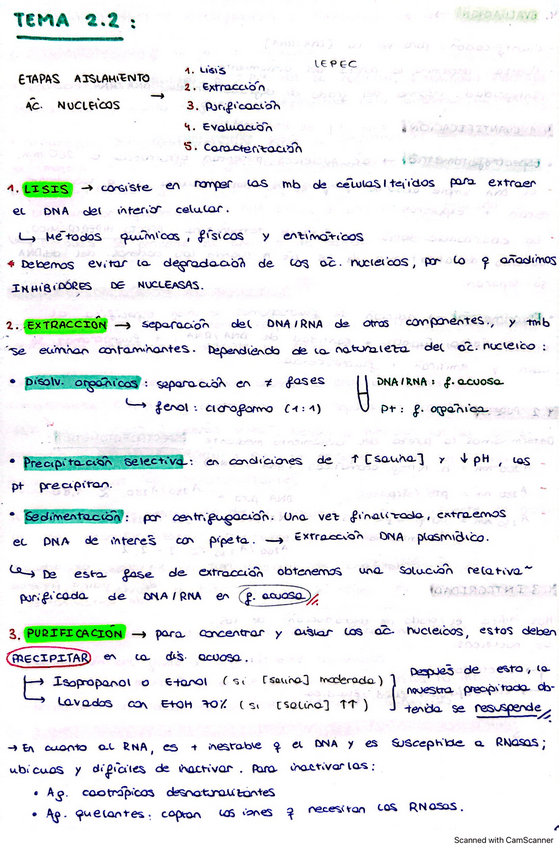 TEMA 2.2 :
LEPEC
ETAPAS AISLAMIENTO
ÁC. NUCLEICOS →
1. Lisis
2. Extracción
3. Purificación
4. Evaluación
5. Caracterización
1. LISIS → consiste en romper las mb de células/tejidos para extraer
el DNA del interior celular.
↳ Métodos químicos, físicos y enzimáticos
* Debemos evitar la degradación de los ác. nucleicos, por lo q añadimos
INHIBIDORES DE NUCLEASAS.
2. EXTRACCIÓN → separación del DNA/RNA de otros componentes., y tmb
se eliminan contaminantes. Dependiendo de la naturaleza del ác. nucleico :
• Disolv. orgánicos : separación en ≠ fases
↳ fenol : cloroformo (1:1)
DNA/RNA : f. acuosa
Pt : f. orgánica
• Precipitación selectiva : en condiciones de ↑ [salina] y ↓ pH, las
pt precipitan.
• Sedimentación : por centrifugación. Una vez finalizada, extraemos
el DNA de interés con pipeta. → Extracción DNA plasmídico.
↳ De esta fase de extracción obtenemos una solución relativa~
purificada de DNA/RNA en f. acuosa
3. PURIFICACIÓN → para concentrar y aislar los ác. nucleicos, estos deben
PRECIPITAR en la dis. acuosa.
→ Isopropanol o Etanol (si [salina] moderada)
→ Lavados con EtOH 70% (si [salina] ↑↑)
Después de esto, la
muestra precipitada ob
tenida se resuspende
→ En cuanto al RNA, es + inestable q el DNA y es susceptible a RNasas;
ubicuas y difíciles de inactivar. Para inactivarlas :
• Ag. caotrópicos desnaturalizantes
• Ag. quelantes : captan los iones q necesitan las RNasas.
Scanned with CamScanner